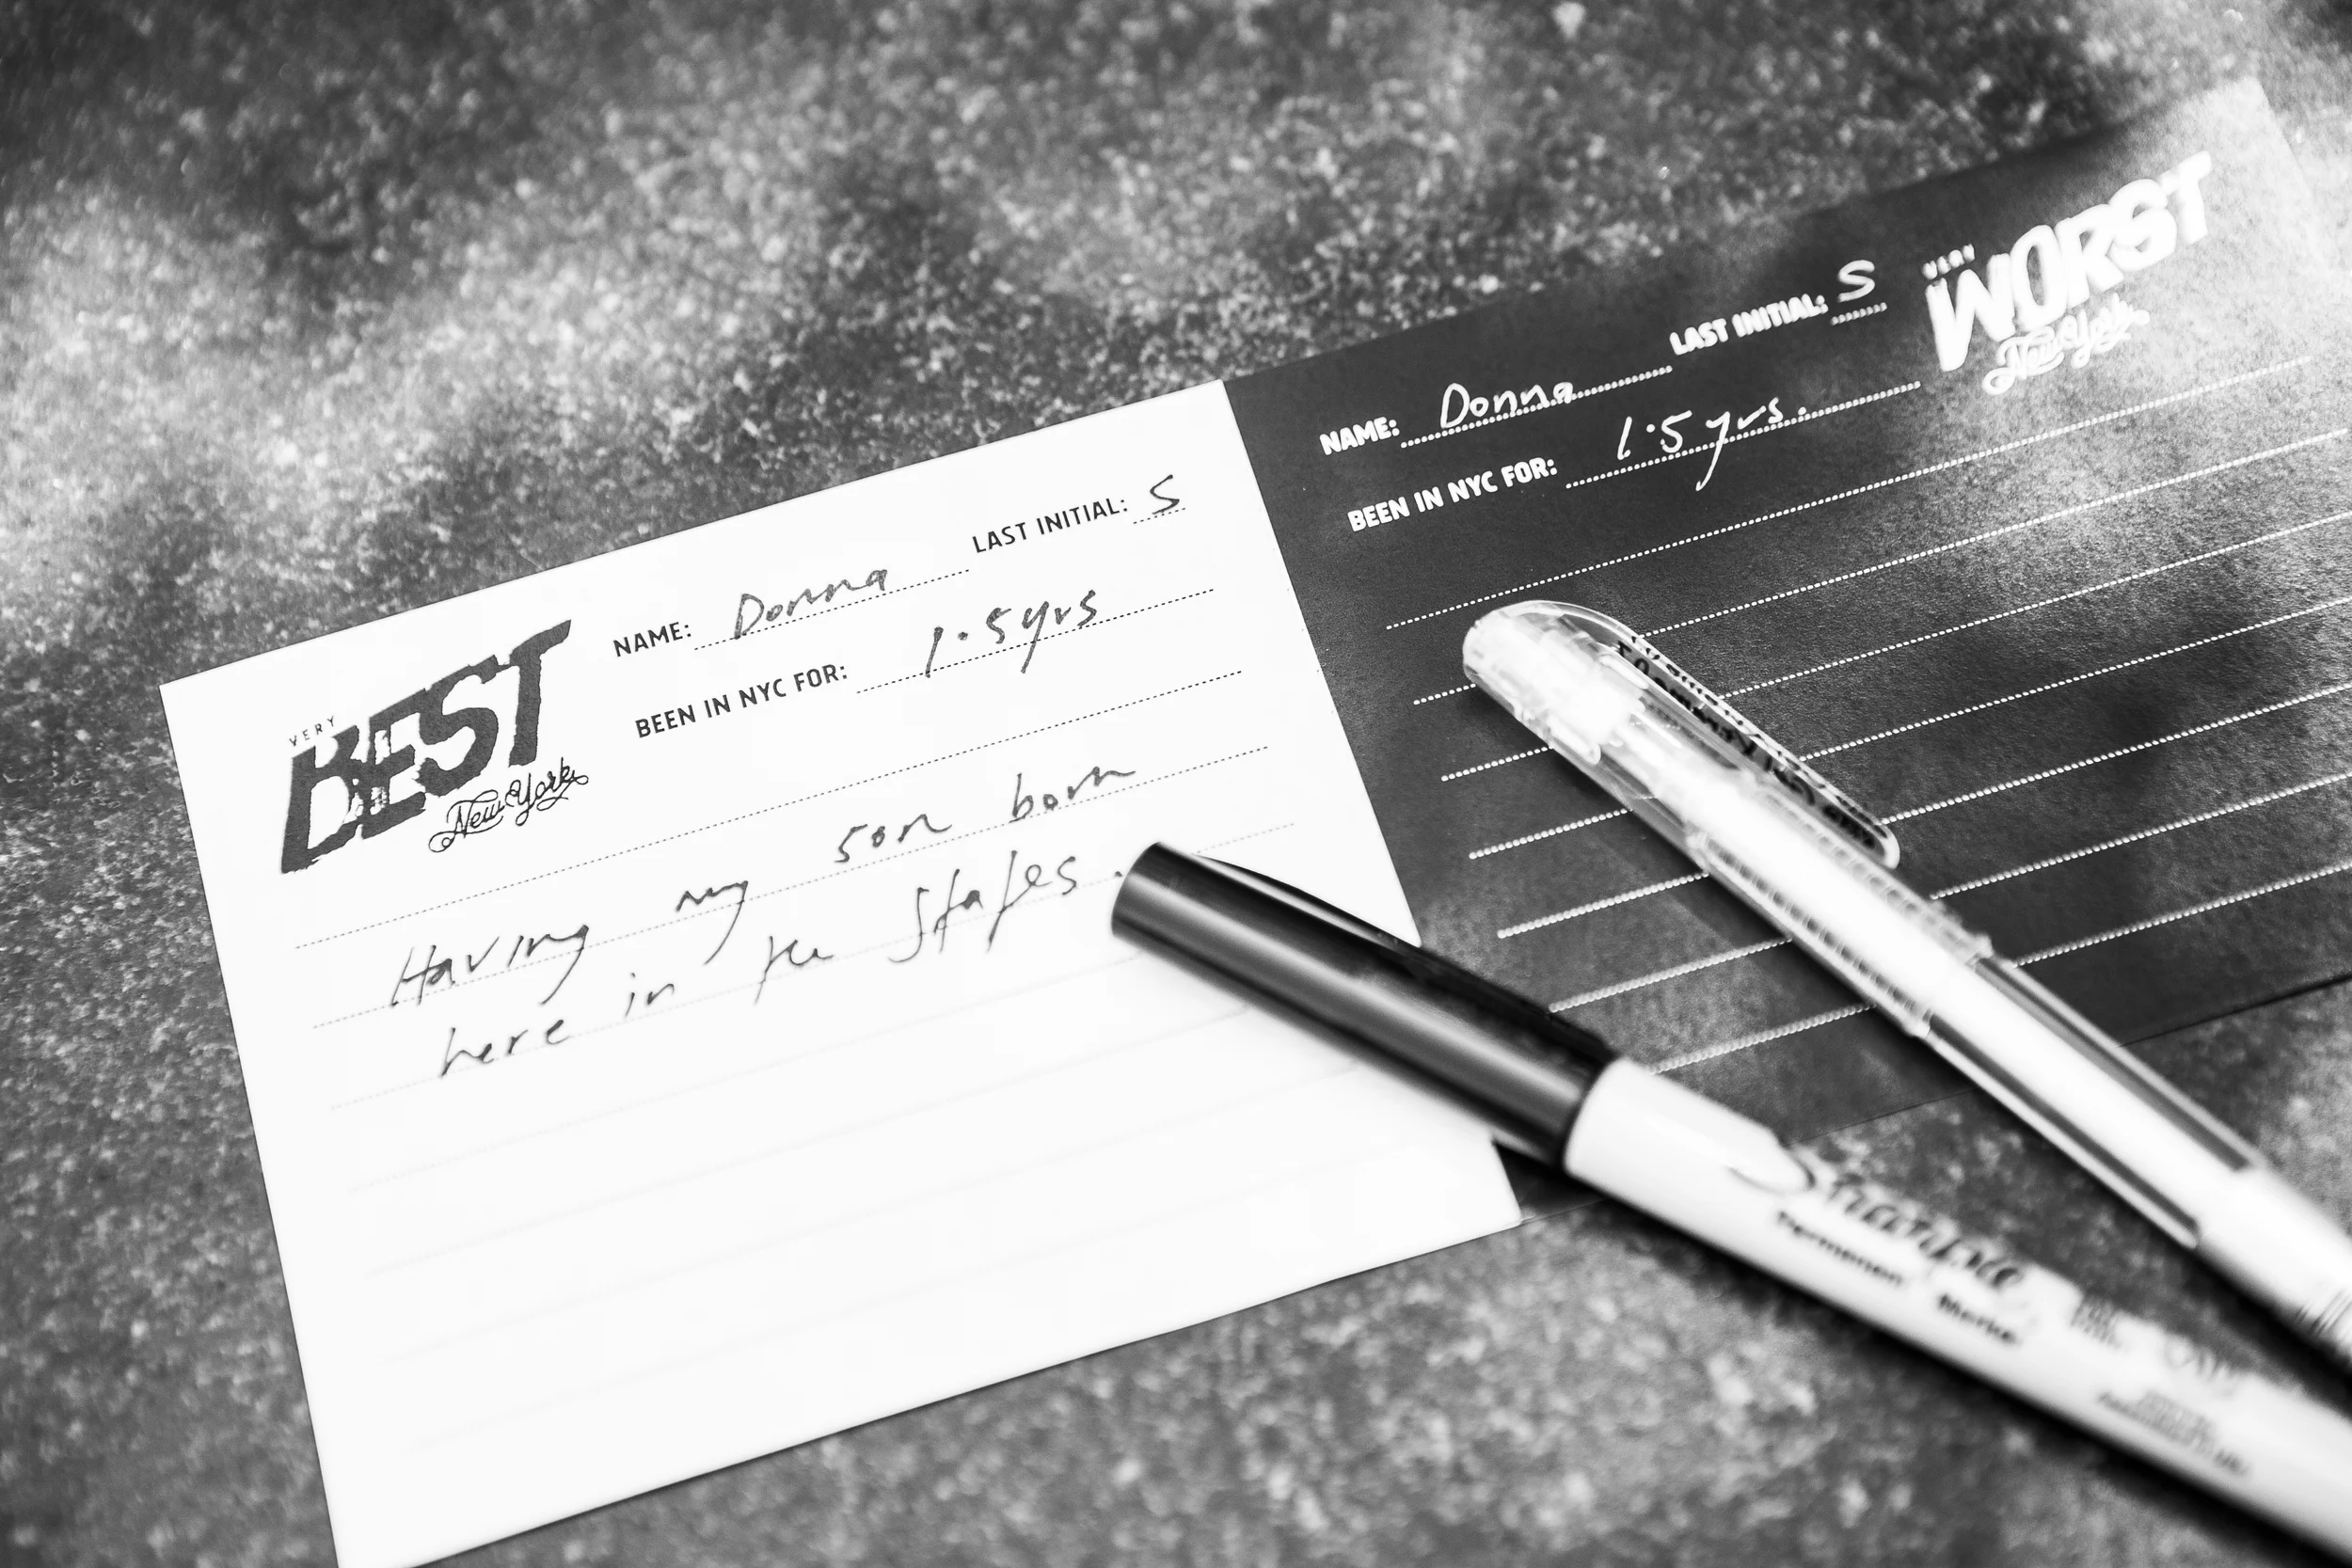 VERY
BEST
New York
NAME: Donna LAST INITIAL: S
BEEN IN NYC FOR: 1.5yrs
Having my son born
here in the States.
NAME: Donna LAST INITIAL: S
BEEN IN NYC FOR: 1.5yrs.
VERY
WORST
New York
Sharpie
Permanent Marker